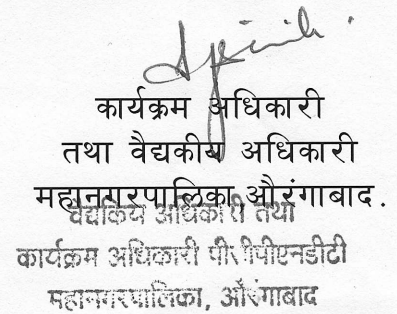 कार्यक्रम अधिकारी
तथा वैद्यकीय अधिकारी
महानगरपालिका,औरंगाबाद.
वैद्यकिय अधिकारी तथा
कार्यक्रम अधिकारी पीसीपीएनडीटी
महानगरपालिका, औरंगाबाद